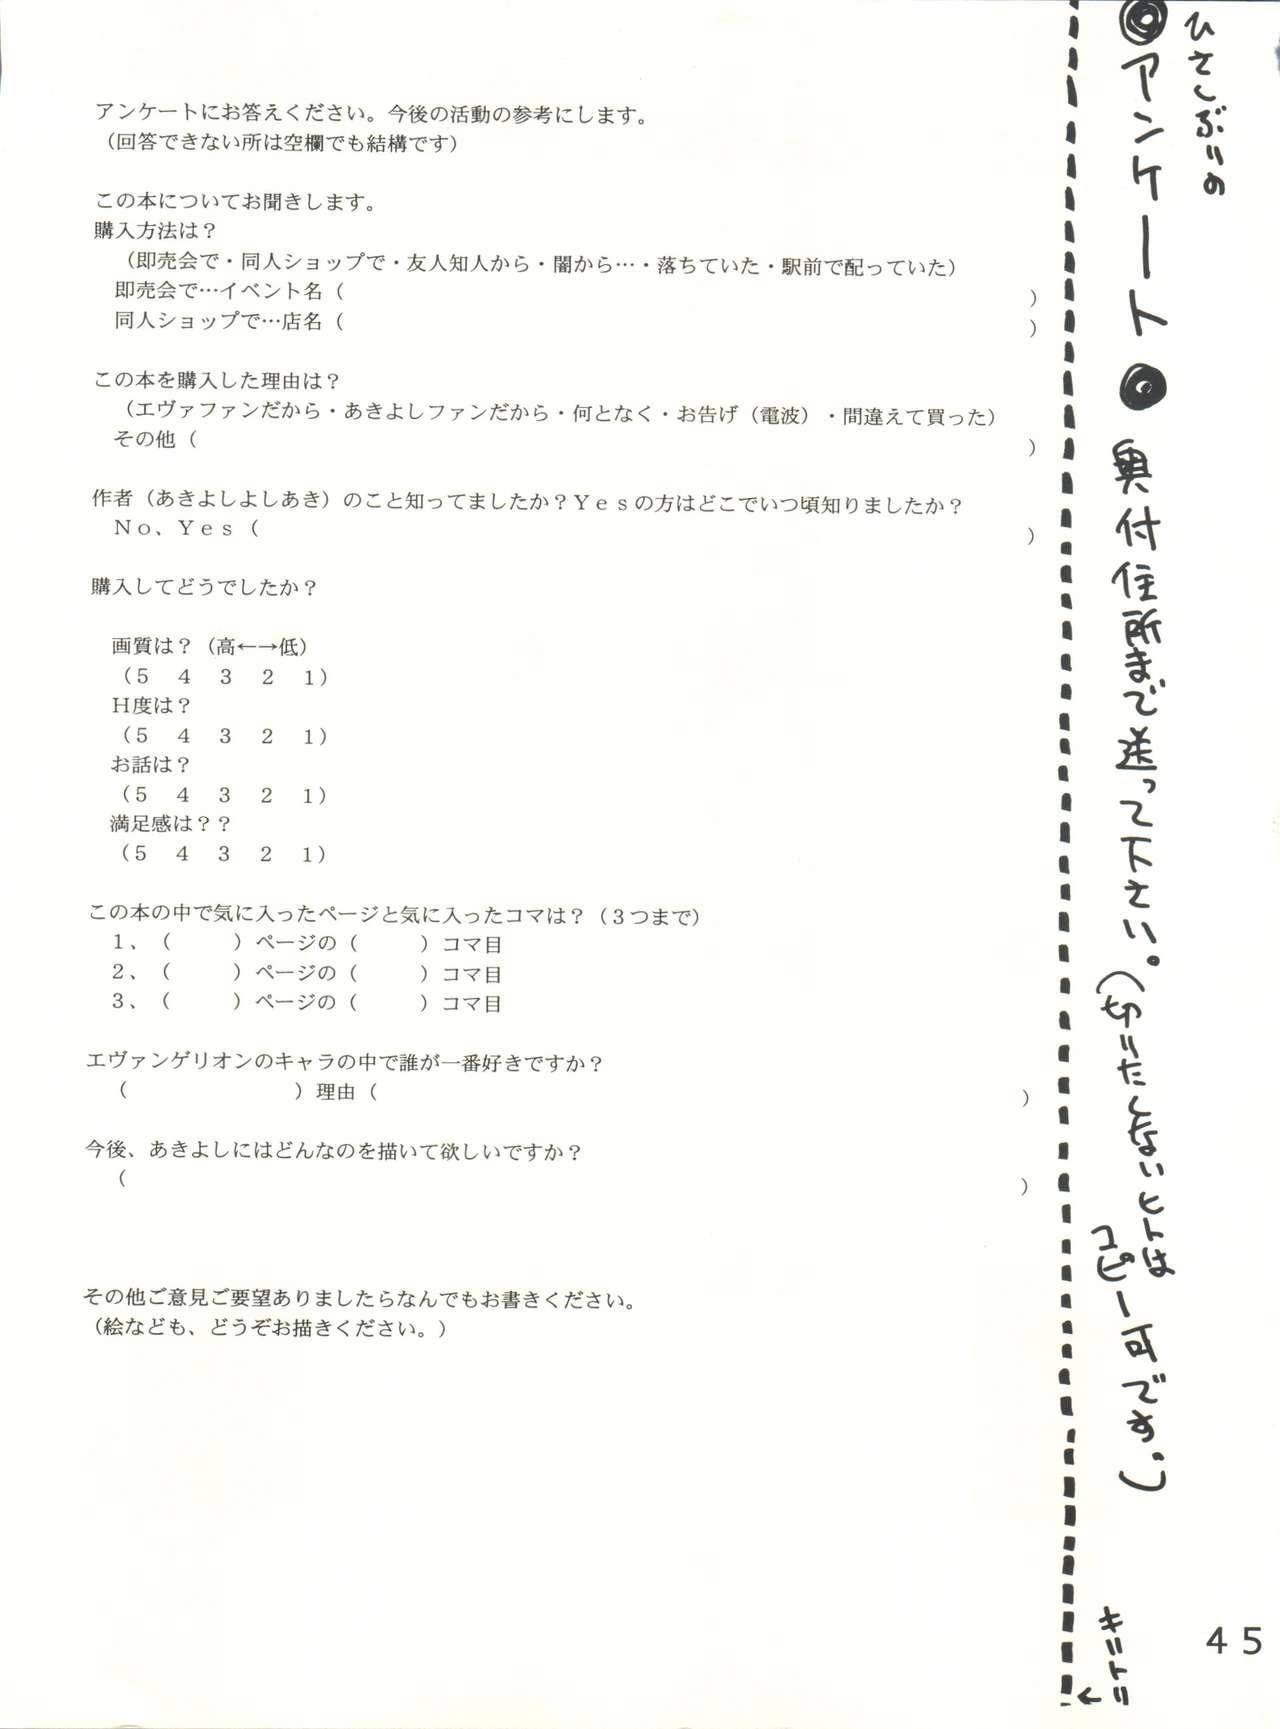 ひさしぶりの
◎アンケート◎奥付住所まで送って下さい。(切りたくないヒトはコピー可です。)
キリトリ
←
アンケートにお答えください。今後の活動の参考にします。
(回答できない所は空欄でも結構です)
この本についてお聞きします。
購入方法は?
(即売会で・同人ショップで・友人知人から・闇から…・落ちていた・駅前で配っていた)
即売会で…イベント名( )
同人ショップで…店名( )
この本を購入した理由は?
(エヴァファンだから・あきよしファンだから・何となく・お告げ(電波)・間違えて買った)
その他( )
作者(あきよしよしあき)のこと知ってましたか?Yesの方はどこでいつ頃知りましたか?
No、Yes( )
購入してどうでしたか?
画質は?(高←→低)
(5 4 3 2 1)
H度は?
(5 4 3 2 1)
お話は?
(5 4 3 2 1)
満足感は??
(5 4 3 2 1)
この本の中で気に入ったページと気に入ったコマは?(3つまで)
1、( )ページの( )コマ目
2、( )ページの( )コマ目
3、( )ページの( )コマ目
エヴァンゲリオンのキャラの中で誰が一番好きですか?
( )理由( )
今後、あきよしにはどんなのを描いて欲しいですか?
( )
その他ご意見ご要望ありましたらなんでもお書きください。
(絵なども、どうぞお描きください。)
45